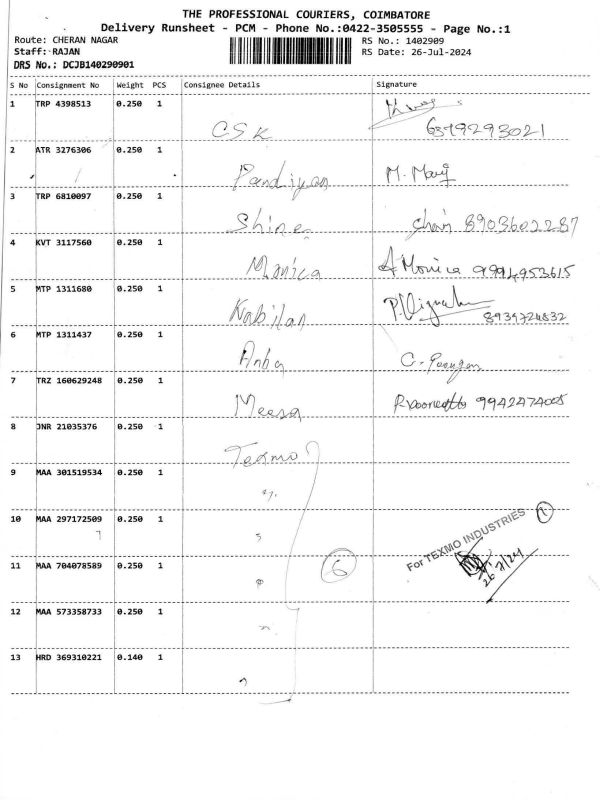 THE PROFESSIONAL COURIERS, COIMBATORE
Delivery Runsheet - PCM - Phone No.:0422-3505555 - Page No.:1
Route: CHERAN NAGAR RS No.: 1402909
Staff: RAJAN RS Date: 26-Jul-2024
DRS No.: DCJB140290901
S No Consignment No Weight PCS Consignee Details Signature
1 TRP 4398513 0.250 1
CSK 6379293021
2 ATR 3276306 0.250 1
Pandiyan M. Mary
3 TRP 6810097 0.250 1
Shine 8903602287
4 KVT 3117560 0.250 1
Monica A Monica 9994953615
5 MTP 1311680 0.250 1
Kabilan 8939724832
6 MTP 1311437 0.250 1
Anba
7 TRZ 160629248 0.250 1
Meesa 9942474005
8 JNR 21035376 0.250 1
Texmo
9 MAA 301519534 0.250 1
10 MAA 297172509 0.250 1
For TEXMO INDUSTRIES 1
11 MAA 704078589 0.250 1
6 26/7/24
12 MAA 573358733 0.250 1
13 HRD 369310221 0.140 1